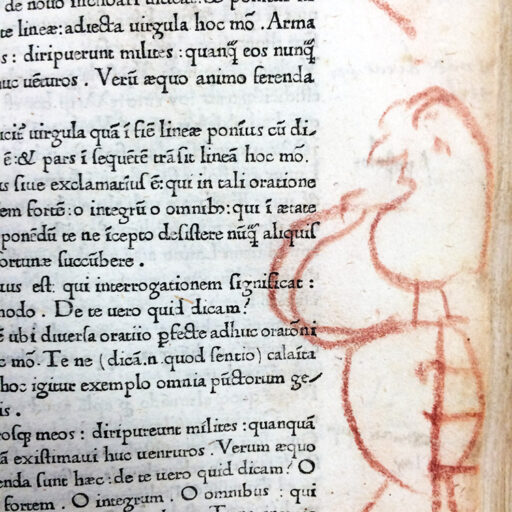 te lineæ: adiecta uirgula hoc mō. Arma
s: diripuerunt milites: quanq̃ eos nunq̃
huc uēturos. Verū æquo animo ferenda
ucit̃ uirgula quā ī fiē lineæ ponīus cū di/
ē: & pars ī sequētē trāsit lineā hoc mō.
us siue exclamatīus ē: qui in tali oratione
em fortē: o integrū o omnibꝰ: qui ī ætate
ponēdū te ne īcepto desistere nūq̃ aliquis
fortunæ succūbere.
uus est: qui interrogationem significat:
modo. De te uero quid dicam?
ē ubi diuersa oratiio ꝑfecte adhuc oratōni
c mō. Te ne (dicā.n.quod sentio) calaīta
hoc igitur exemplo omnia pūctorum ge/
is.
rosq; meos: diripureunt milites: quanquā
ā existimaui huc uenruros. Verum æquo
enda sunt hæc: de te uero quid dicam? O
fortem. O integrum. O omnibus: qui